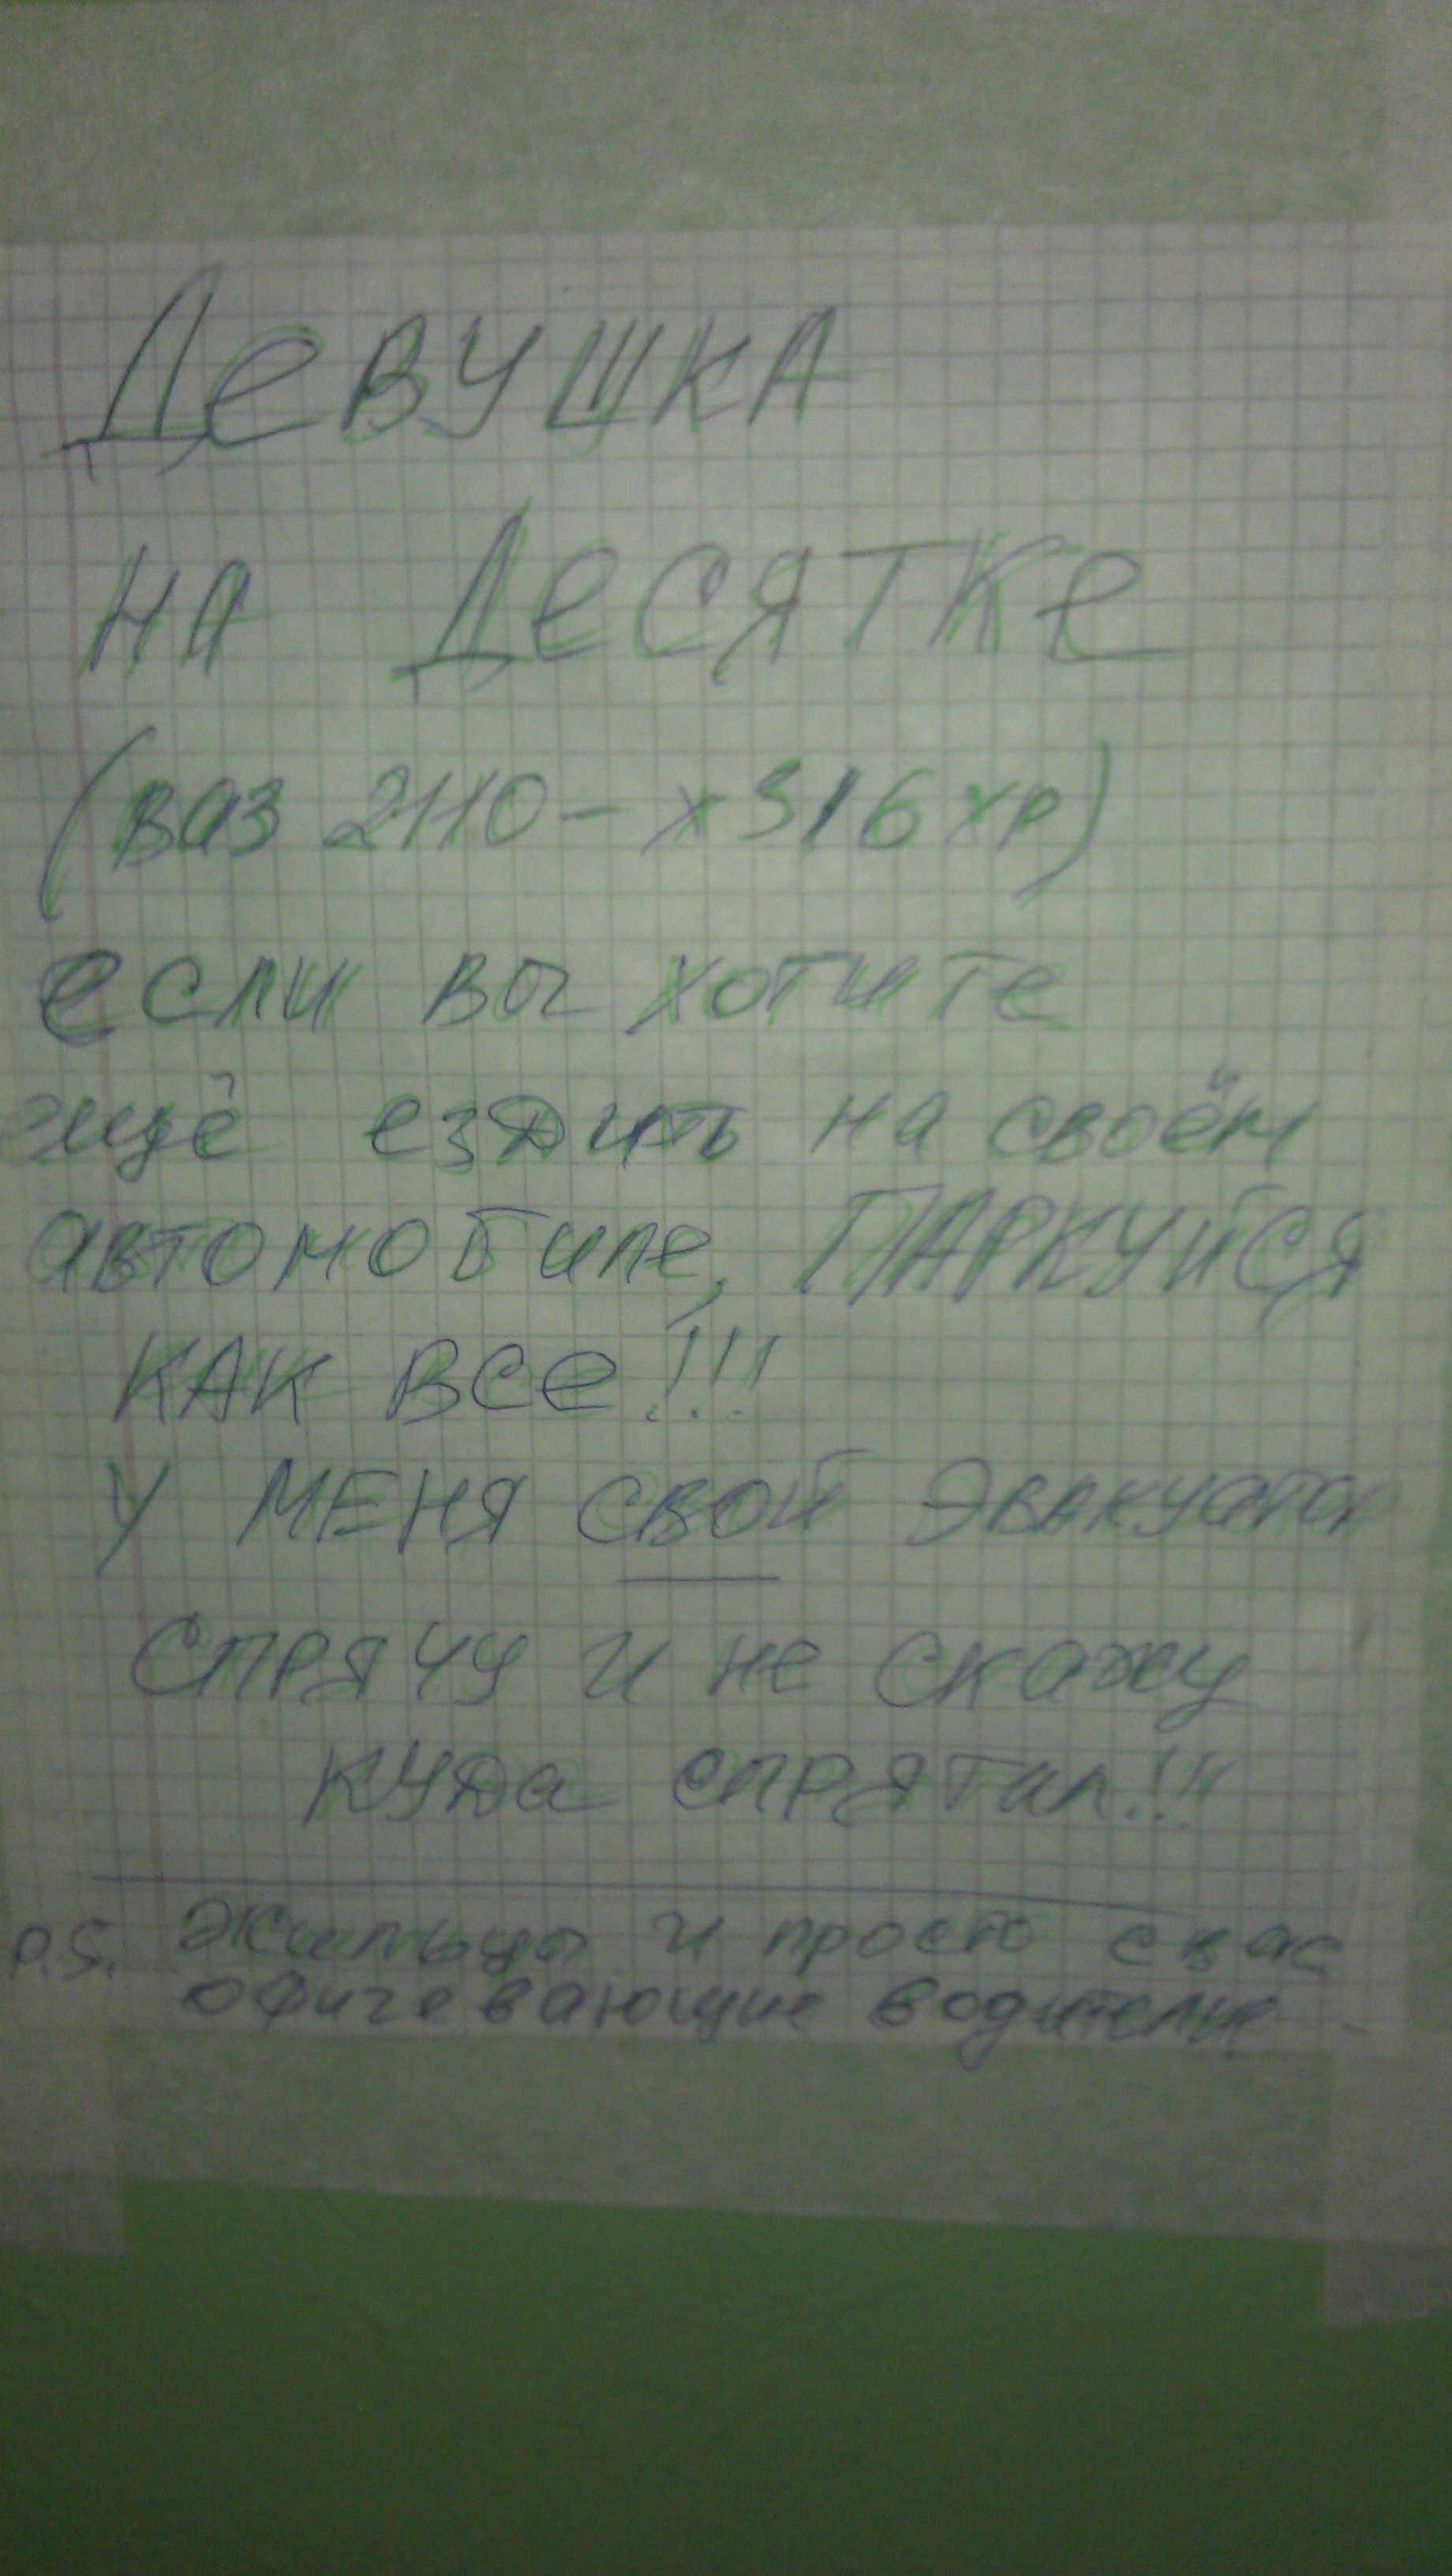 ДЕВУШКА
НА ДЕСЯТКЕ
(ваз 2110 - х316хр)
если вы хотите
ещё ездить на своём
автомобиле, ПАРКУЙСЯ
КАК ВСЕ!!!
У МЕНЯ СВОЙ ЭВАКУАТОР
СПРЯЧУ И НЕ СКАЖУ
КУДА СПРЯТАЛ!!!
P.S. Жильцы и просто с вас
офигевающие водители